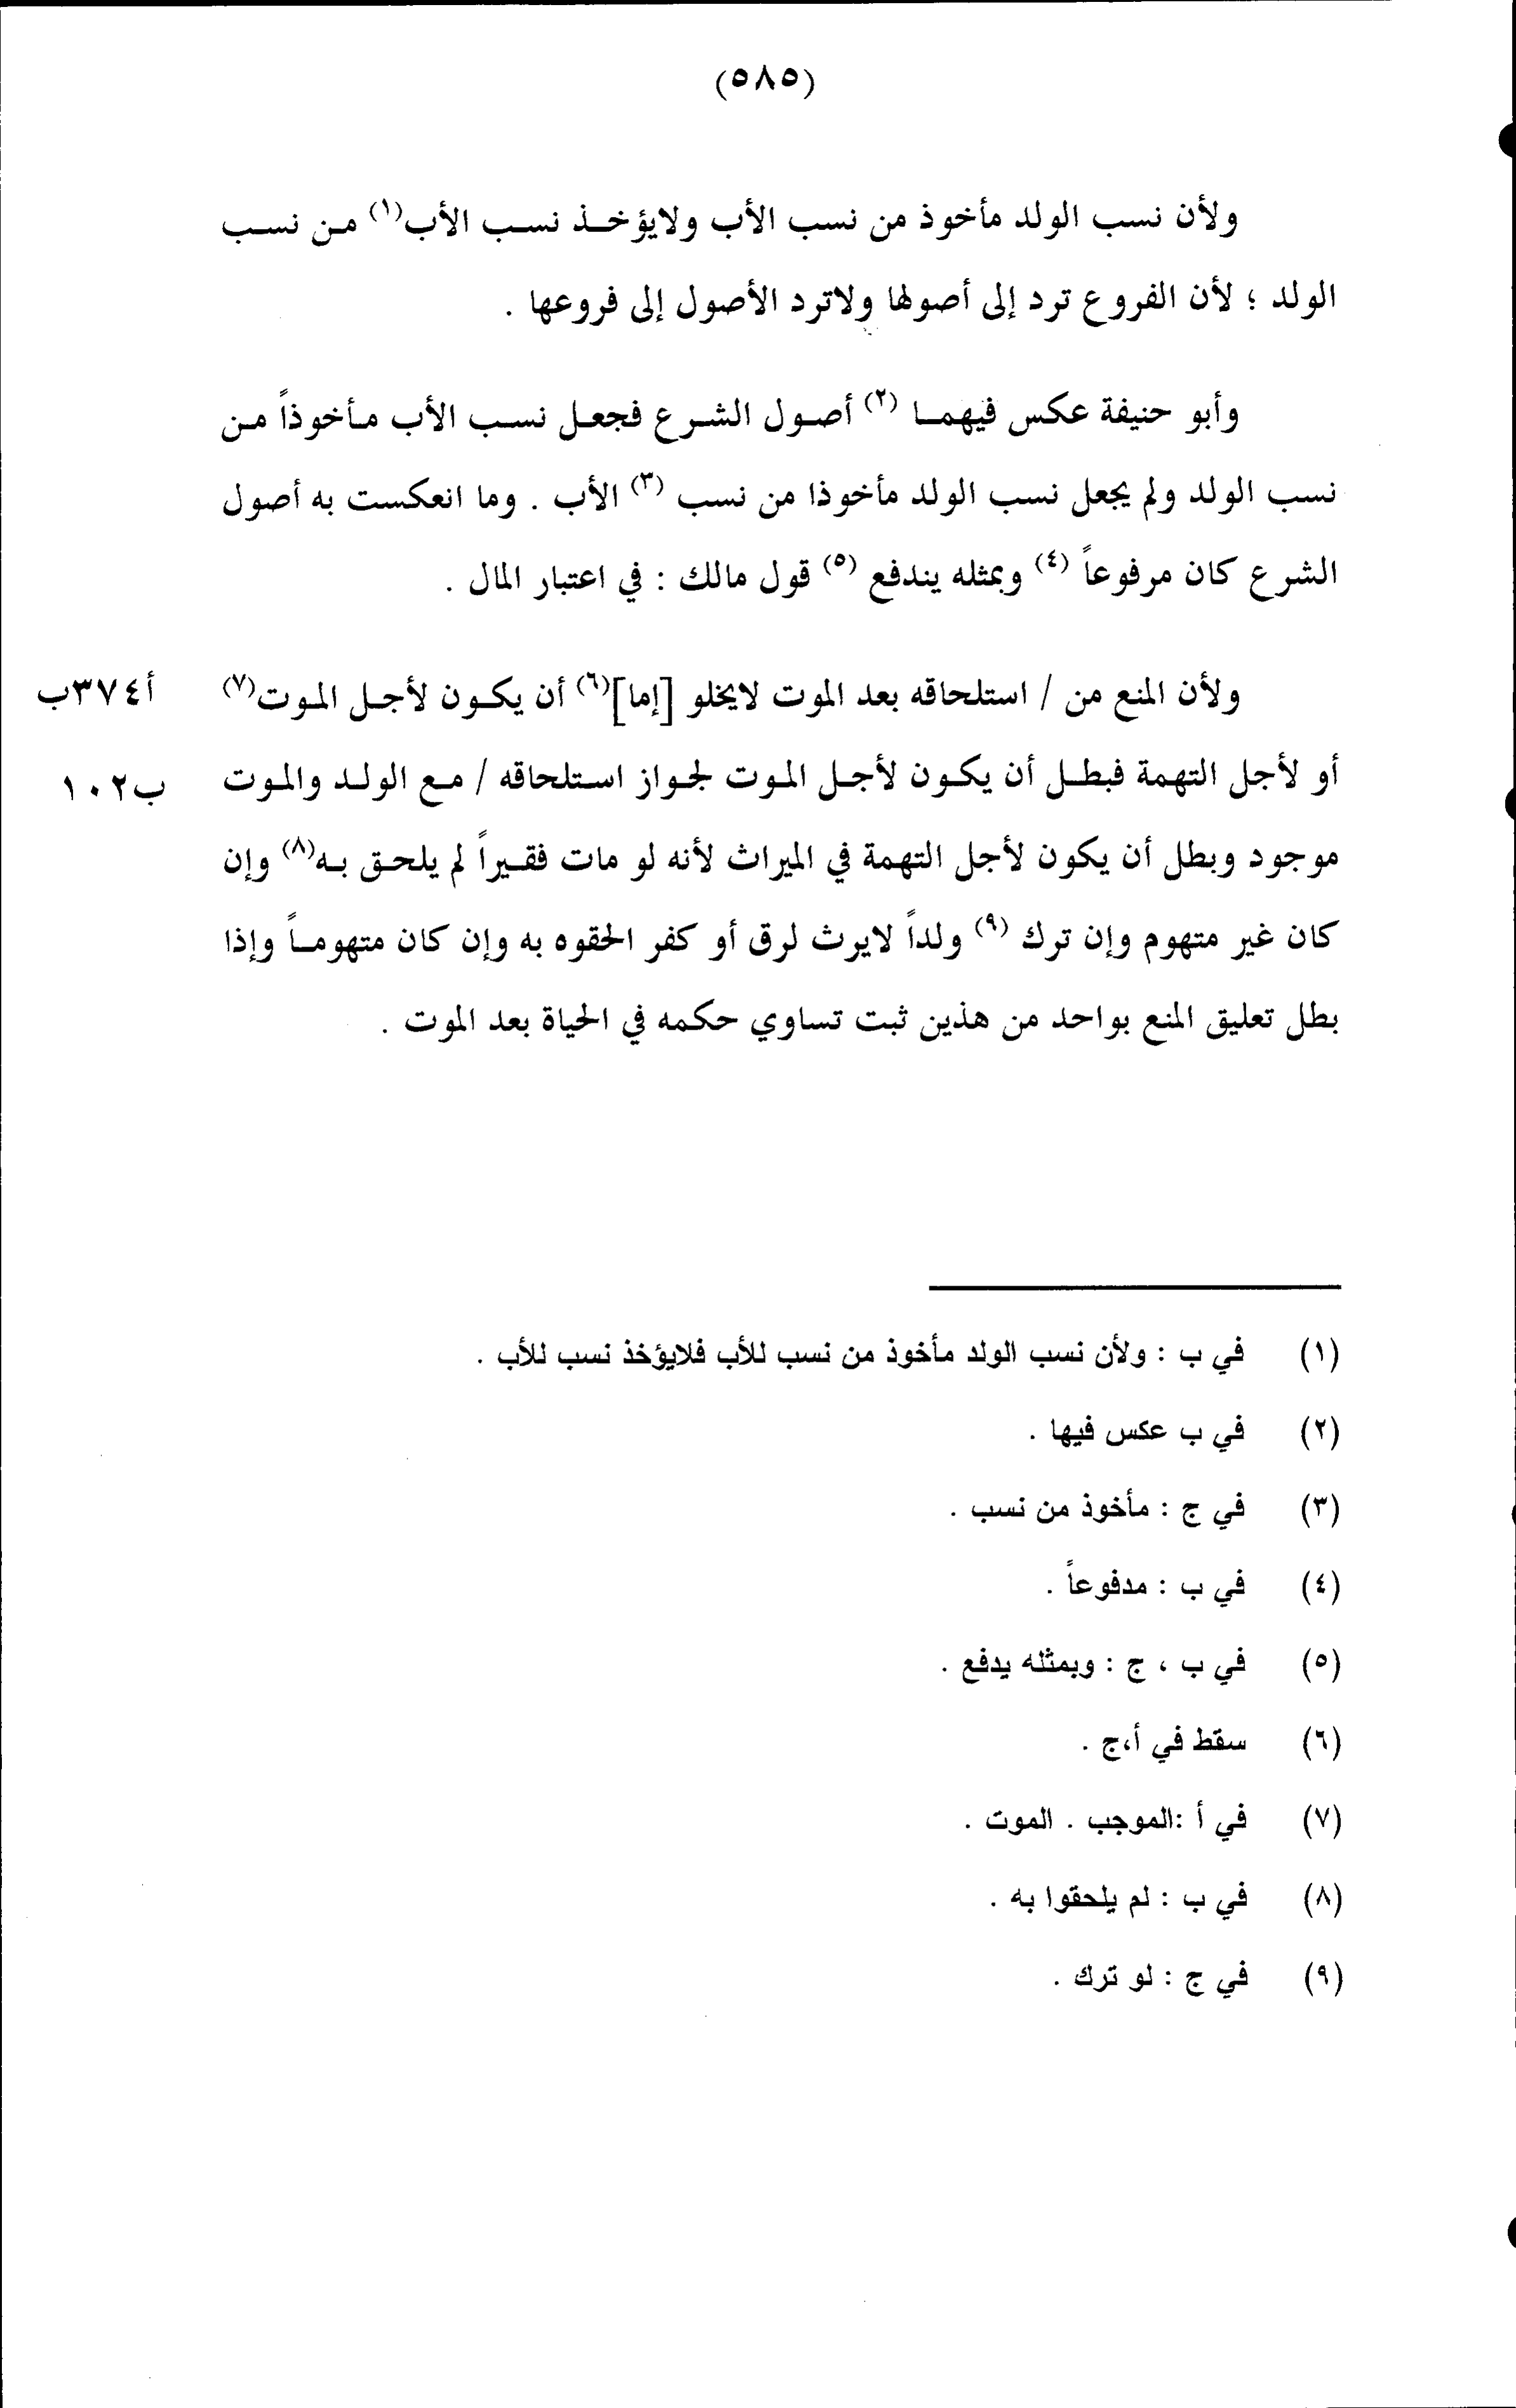 (٥٨٥)
ولأن نسب الولد مأخوذ من نسب الأب ولايؤخذ نسب الأب(١) من نسب
الولد ؛ لأن الفروع ترد إلى أصولها ولاترد الأصول إلى فروعها .
وأبو حنيفة عكس فيهما (٢) أصول الشرع فجعل نسب الأب مأخوذاً من
نسب الولد ولم يجعل نسب الولد مأخوذا من نسب (٣) الأب . وما انعكست به أصول
الشرع كان مرفوعاً (٤) وبمثله يندفع (٥) قول مالك : في اعتبار المال .
ولأن المنع من / استلحاقه بعد الموت لايخلو [إما](٦) أن يكون لأجل الموت(٧) أ٣٧٤ب
أو لأجل التهمة فبطل أن يكون لأجل الموت لجواز استلحاقه / مع الولد والموت ب١٠٢
موجود وبطل أن يكون لأجل التهمة في الميراث لأنه لو مات فقيراً لم يلحق به(٨) وإن
كان غير متهوم وإن ترك (٩) ولداً لايرث لرق أو كفر الحقوه به وإن كان متهوماً وإذا
بطل تعليق المنع بواحد من هذين ثبت تساوي حكمه في الحياة بعد الموت .
(١) في ب : ولأن نسب الولد مأخوذ من نسب للأب فلايؤخذ نسب للأب .
(٢) في ب عكس فيها .
(٣) في ج : مأخوذ من نسب .
(٤) في ب : مدفوعاً .
(٥) في ب ، ج : وبمثله يدفع .
(٦) سقط في أ،ج .
(٧) في أ :الموجب . الموت .
(٨) في ب : لم يلحقوا به .
(٩) في ج : لو ترك .